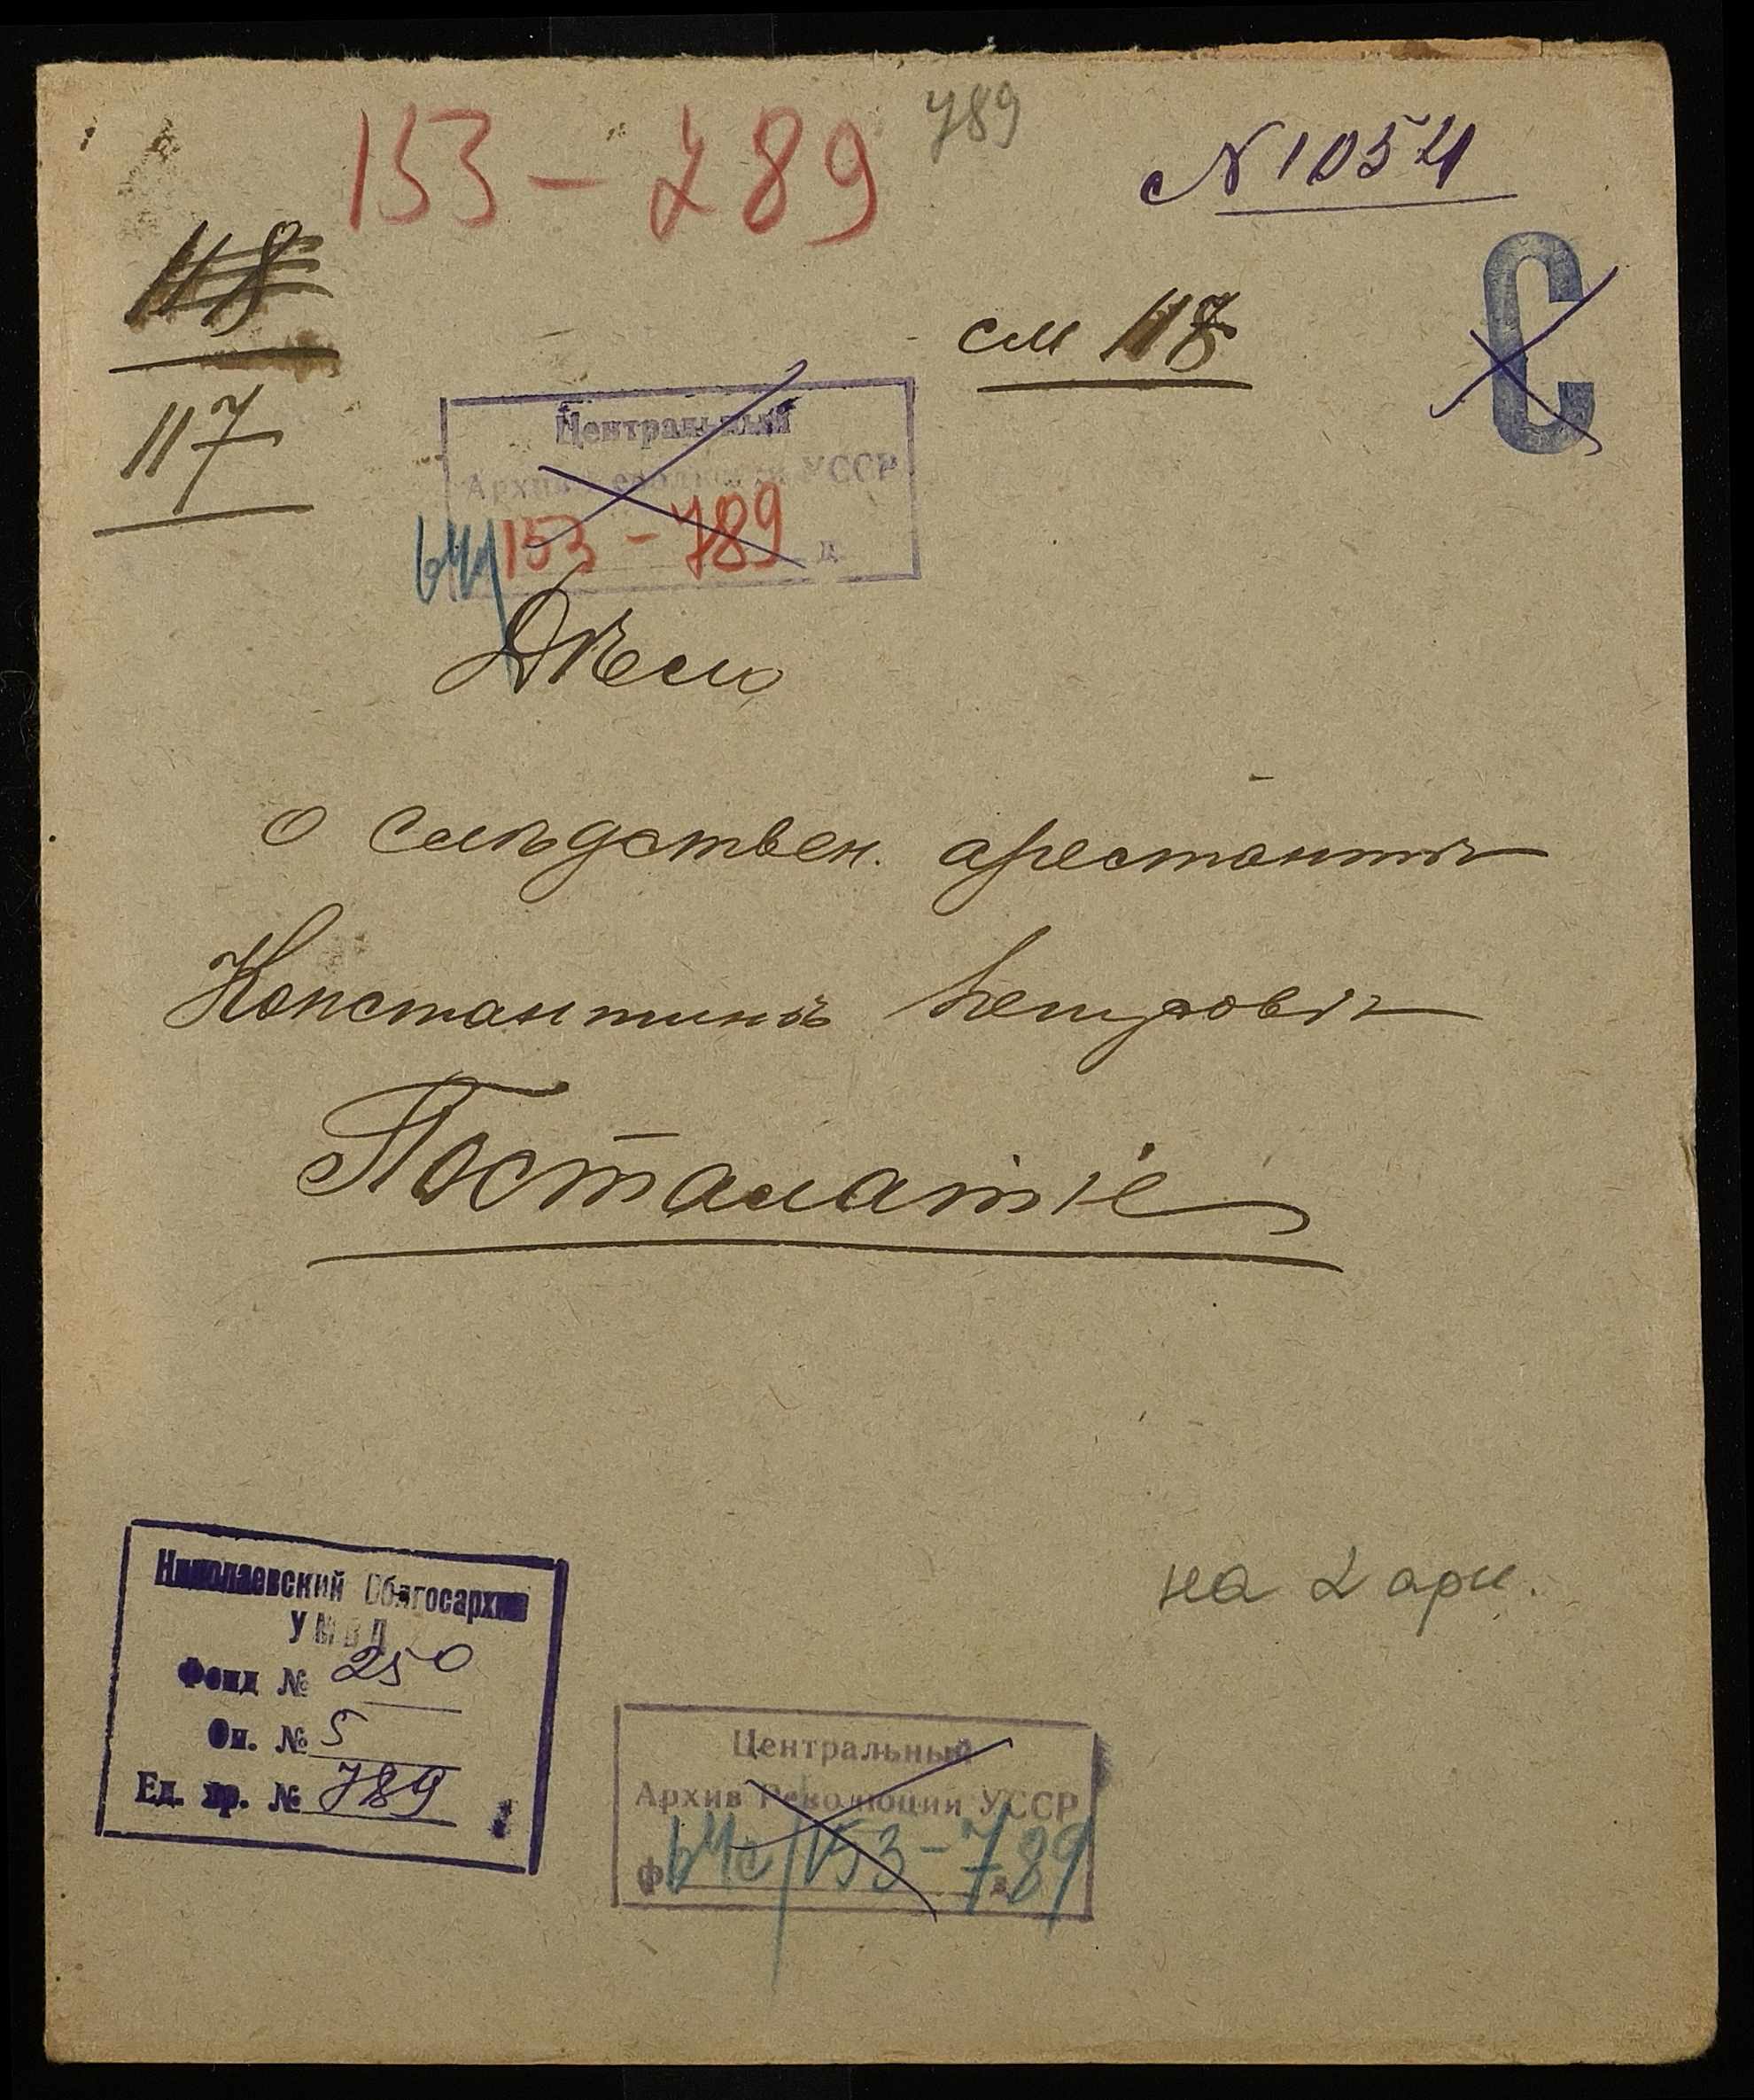 153 - 789
789
N 1054
118
см 117
С
117
Центральный
Архив Революции УССР
153 - 789 д.
Дѣло
о слѣдствен. арестантѣ
Константинѣ Петровѣ
Посталатіе
Николаевский Облгосархив
УМВД
Фонд № 250
Оп. № 5
Ед. хр. № 789
на 2 арк.
Центральный
Архив Революции УССР
ф 153 - 789 д